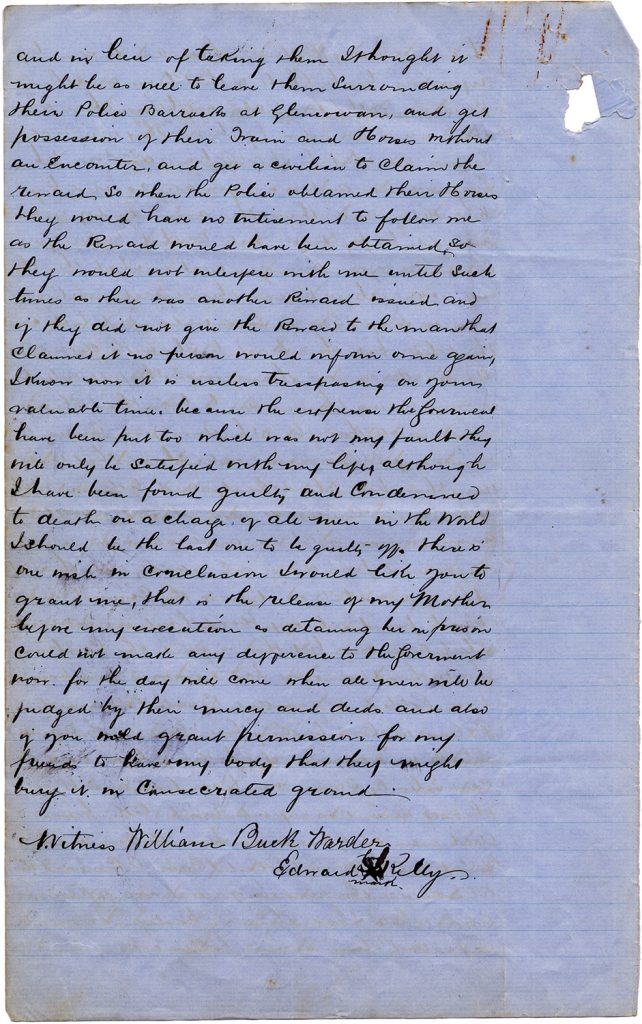 and in lieu of taking them I thought it
might be as well to leave them Surrounding
their Police Barracks at Glenrowan, and get
possession of their Train and Horses without
an Encounter, and get a civilian to Claim the
reward, So when the Police obtained their Horses
they would have no enticement to follow me
as the Reward would have been obtained, So
they would not interfere with me until Such
times as there was another Reward issued and
if they did not give the Reward to the man that
Claimed it no person would inform on me again,
I Know now it is useless trespasing on your
valuable time. because the expense the Goverment
have been put too which was not my fault they
will only be Satisfied with my life, although
I have been found guilty and Condemned
to death on a charge, of all men in the World
I should be the last one to be guilty off. there is
one wish in Conclusion I would like you to
grant me, that is the release of my Mother
before my execution as detaining her in prison
could not make any difference to the Goverment
now. for the day will come when all men will be
judged by their mercy and deeds and also
if you would grant permission for my
friends to have my body that they might
bury it in Consecrated ground.
Witness William Buck Warder
Edward X Kelly
mark.